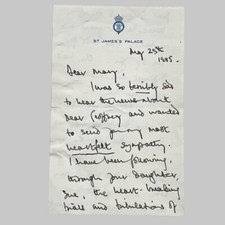 ST JAMES'S PALACE
May 25th
1985.
Dear Mary,
I was so terribly sad
to hear the news about
dear Geoffrey and wanted
to send you my most
heartfelt sympathy.
I have been following,
through your daughter,
Sue, the heart-breaking
trials and tribulations of